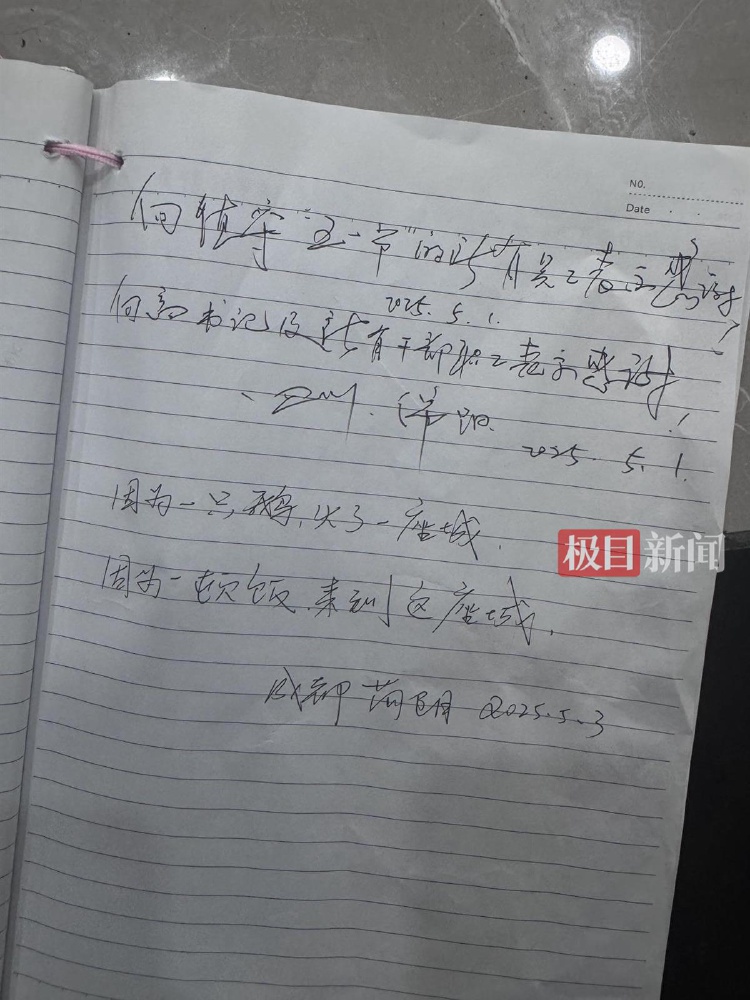 NO.
Date
向值守“五一节”的所有员工表示感谢!
2025.5.1.
向高书记及所有干部职工表示感谢!
四川. 2025.5.1.
因为一只鹅,火了一座城.
因为一顿饭,来到这座城.
成都 2025.5.3
极目新闻